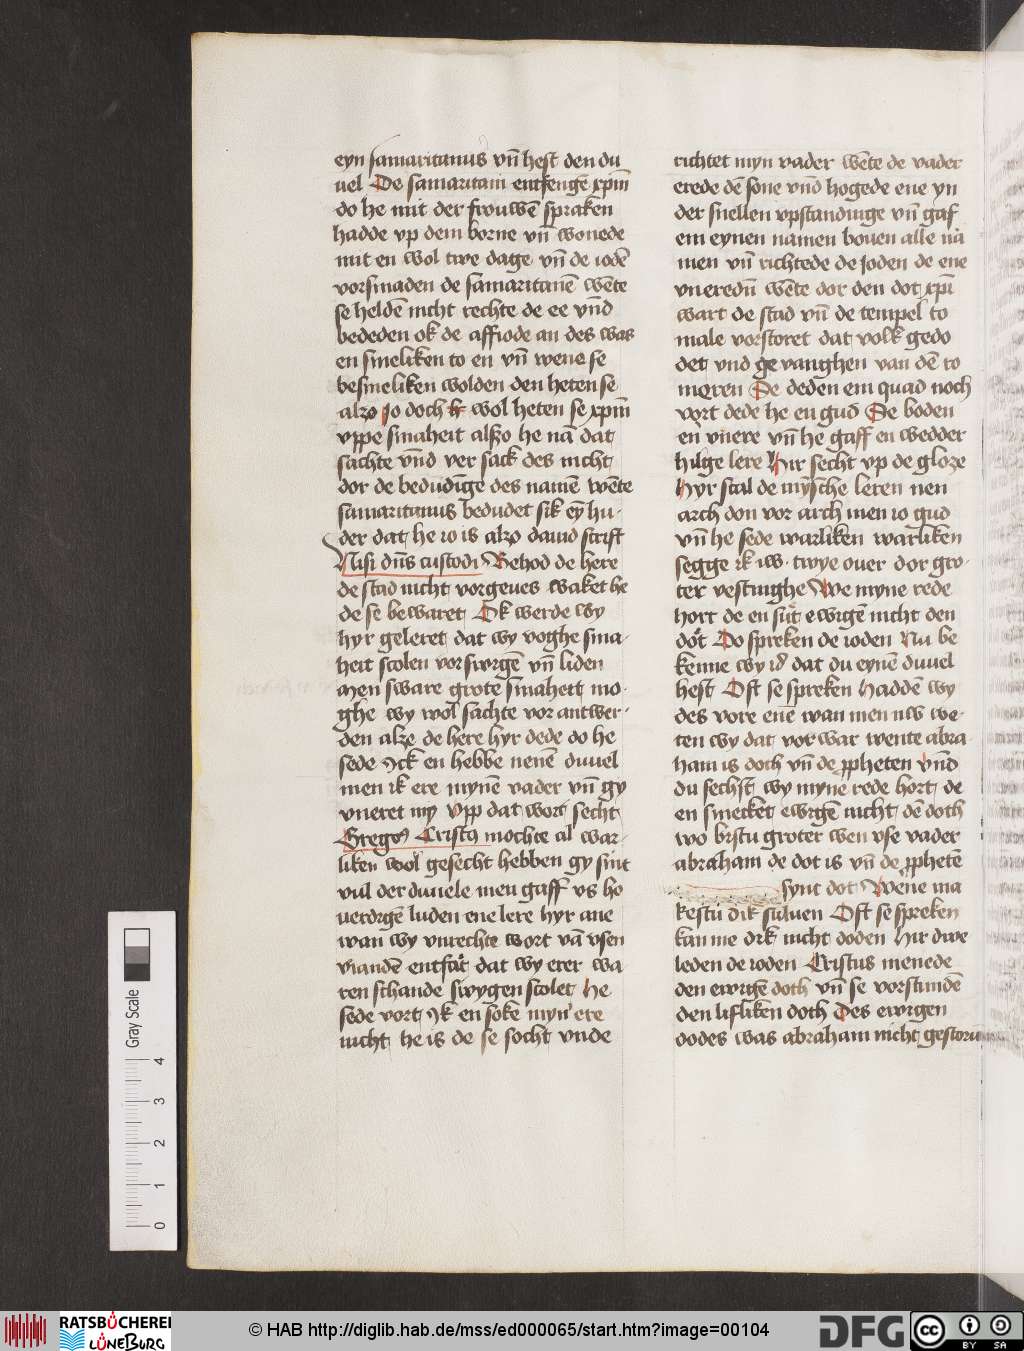 eyn samaritanus vn̄ hest den du
uel De samaritani entfengē xp̄m
do he mit der frouwē spraken
hadde vp dem borne vn̄ wonede
mit en wol twe dage vn̄ de iodē
vorsmaden de samaritanē wēte
se heldē nicht rechte de ee vn̄d
bededen ok de affgode an des was
en smeliken to en vn̄ wene se
besmeliken wolden den heten se
alzo jo doch wol heten se xp̄m
vppe smaheit alszo he nā dat
sachte vn̄d ver sack des nicht
dor de bedudīge des namē wēte
samaritanus bedudet sik eȳ hu
der dat he io is alzo dauid scrift
Nisi dn̄s custodi Behod de here
de stad nicht vorgeues waket he
de se bewaret Ok werde wy
hyr geleret dat wy voghe sma
heit scolen vorswigē vn̄ liden
Men sware grotē smaheit mo
ghe wy wol sachte vor antwer
den alze de here hyr dede do he
sede Jck en hebbe nenē duuel
men ik ere mynē vader vn̄ gy
vneret my Vpp dat wort secht
Grego Cristus mochte al war
liken wol gesecht hebben gy sint
vul der duuele men gaff vs ho
uerdigē luden ene lere hyr ane
wan wy vnrechte wort vā vsen
viandē entfāt dat wy erer wa
ren schande swygen scolet He
sede vort Jk en soke myn ere
nicht he is de se socht vnde
richtet myn vader wēte de vader
erede dē sone vnd hogede ene yn
der snellen vpstandinge vn̄ gaf
em eynen namen bouen alle nā
men vn̄ richtede de Joden de ene
vneredū wēte dor den dot xp̄i
wart de stad vn̄ de tempel to
male vorstoret dat volk gedo
det vnd ge vanghen van dē ro
meren De deden em quad noch
vort dede he en gud De boden
en vnere vn̄ he gaff en wedder
hilge lere Hir secht vp de gloze
Hyr scal de mȳsche leren nen
arch don vor arch men io gud
vn̄ he sede warliken warliken
segge ik iw twye ouer dor gro
ter vestinghe We myne rede
hort de en sut ewigē nicht den
dot Do spreken de ioden Nu be
kenne wy id dat du eynē duuel
hest Oft se spreken Haddē wy
des vore enē wan men nw we
ten wy dat vor war wente abra
ham is doch vn̄ de ppheten vn̄d
du sechst wy mynē rede hort de
en smecket ewigē nicht dē doth
wo bistu groter wen vse vader
abraham de dot is vn̄ de pphetē
synt dot Wene ma
kestu dik suluen Oft se spreken
kan me dik nicht doden Hir dwe
leden de ioden Cristus menede
den ewigē doth vn̄ se vorstundē
den lifliken doch Des ewigen
dodes was abraham nicht gestoru
Gray Scale
4
3
2
1
0
RATSBÜCHEREI
LÜNEBURG
© HAB http://diglib.hab.de/mss/ed000065/start.htm?image=00104
DFG
cc
BY SA